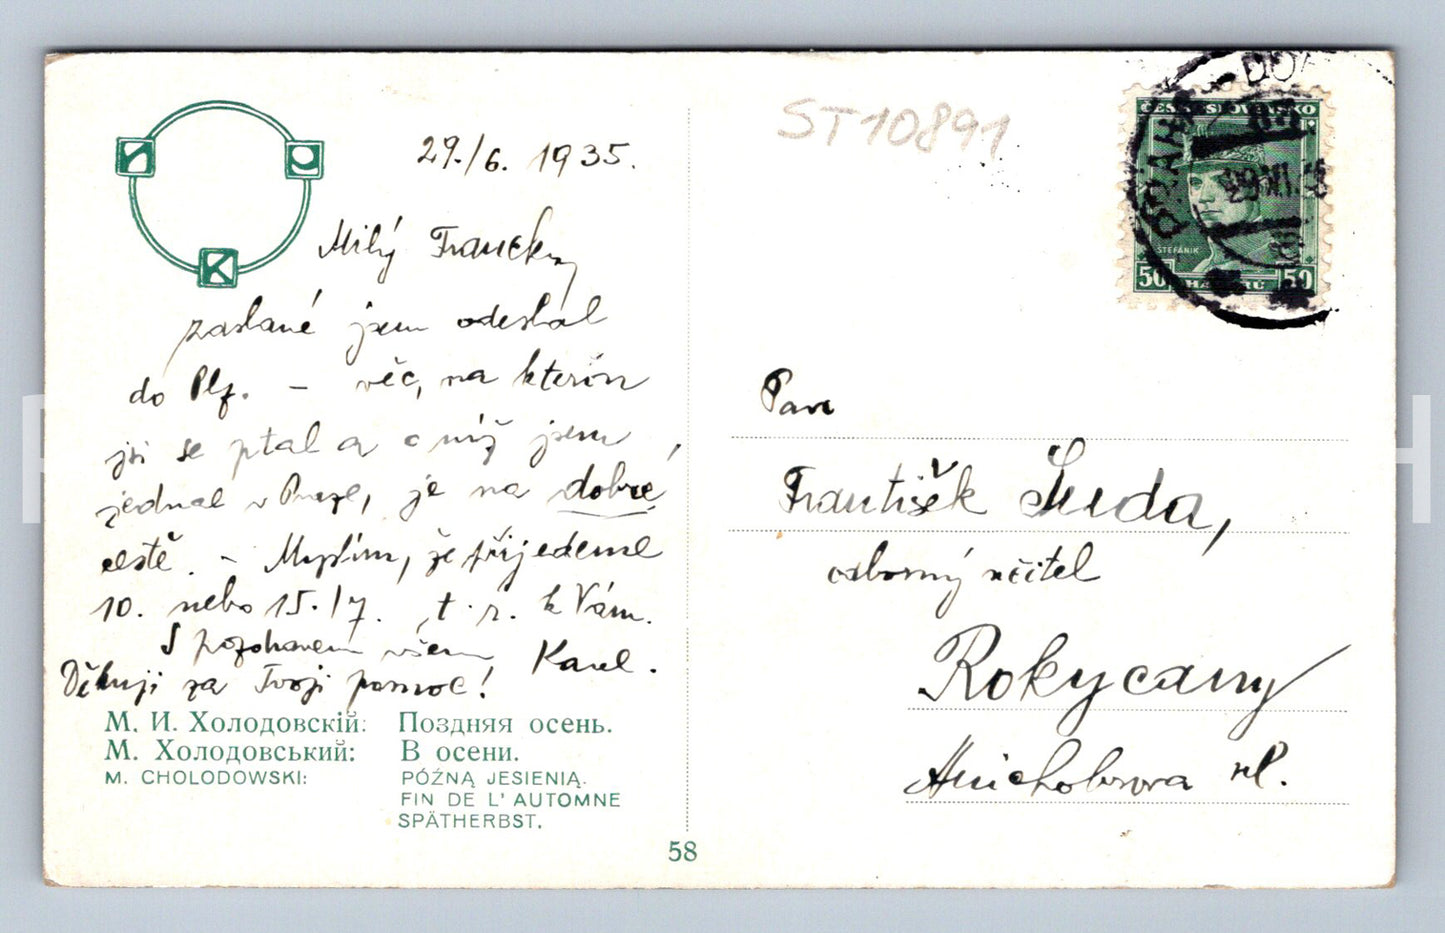 ST10891
29./6. 1935.
Milý Francku
zaslané jsem odeslal
do Plz. – věc, na kterou
jsi se ptal a o níž jsem
jednal v Praze, je na dobré
cestě. – Myslím, že přijedeme
10. nebo 15./7. t. r. k Vám.
S pozdravem všem Karel.
Děkuji za Tvoji pomoc!
М. И. Холодовскій: Поздняя осень.
М. Холодовський: В осени.
M. CHOLODOWSKI: PÓŹNĄ JESIENIĄ.
FIN DE L' AUTOMNE
SPÄTHERBST.
58
ČESKOSLOVENSKO
PRAHA
29 VI
ŠTEFÁNIK
50 HALÉŘŮ 50
Pan
František Šuda,
odborný učitel
Rokycany
ul.